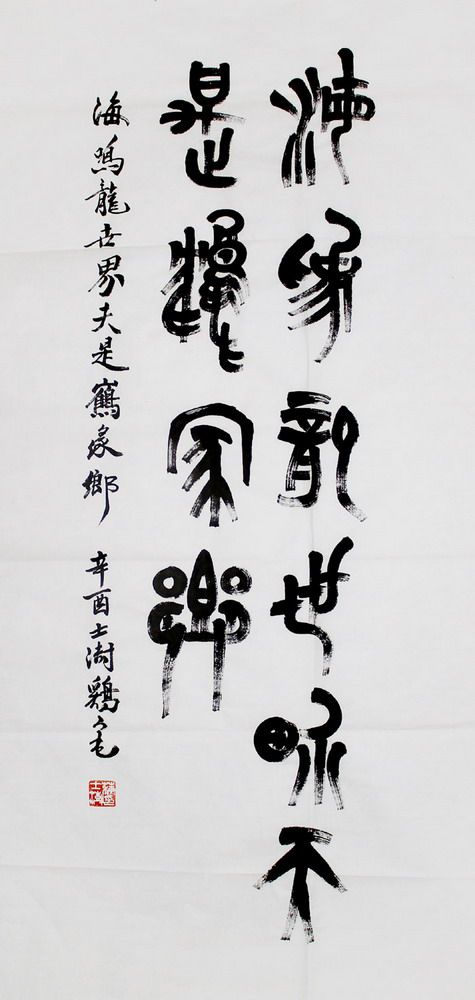 海為龍世界天
是鶴家鄉
海為龍世界天是鶴家鄉 辛酉士澍鷄毛